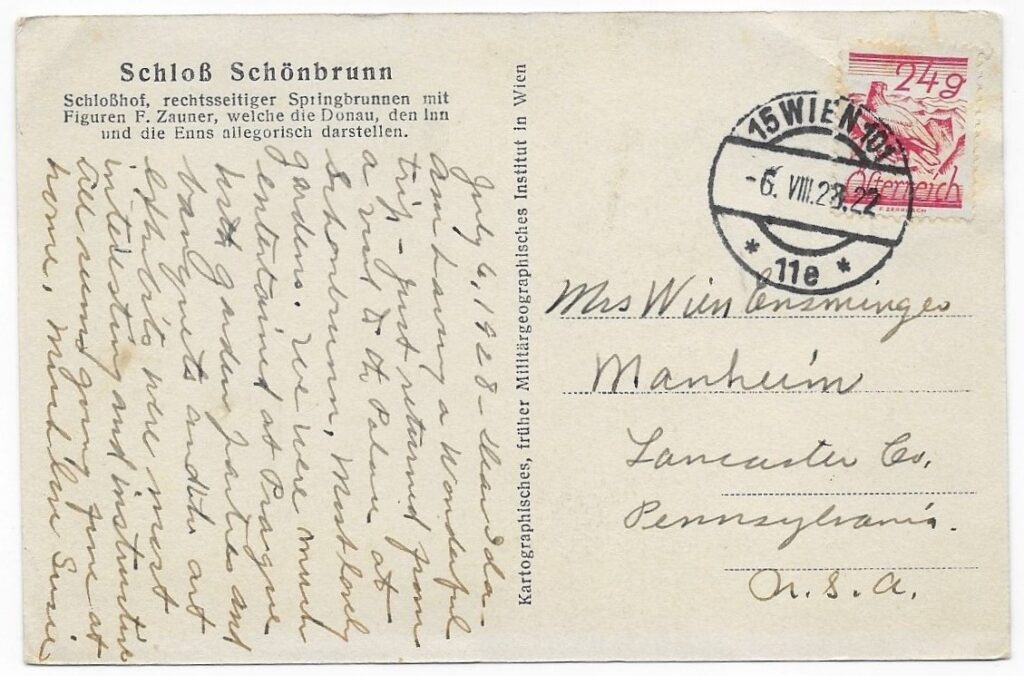 Schloß Schönbrunn
Schloßhof, rechtsseitiger Springbrunnen mit
Figuren F. Zauner, welche die Donau, den Inn
und die Enns allegorisch darstellen.
July 6, 1928 – Dear Ida –
am having a wonderful
trip – Just returned from
a visit to the Palace at
Schonbrunn, Most lovely
gardens. We were much
entertained at Prague
with garden parties and
banquets and the art
exhibits were most
interesting and instructive
Will seem going some at
home, Much love Susie
Kartographisches, früher Militärgeographisches Institut in Wien
24g
Österreich
15 WIEN 101
-6. VIII.28.22
* 11e *
Mrs Wien Ensminger
Manheim
Lancaster Co,
Pennsylvania.
U.S.A.